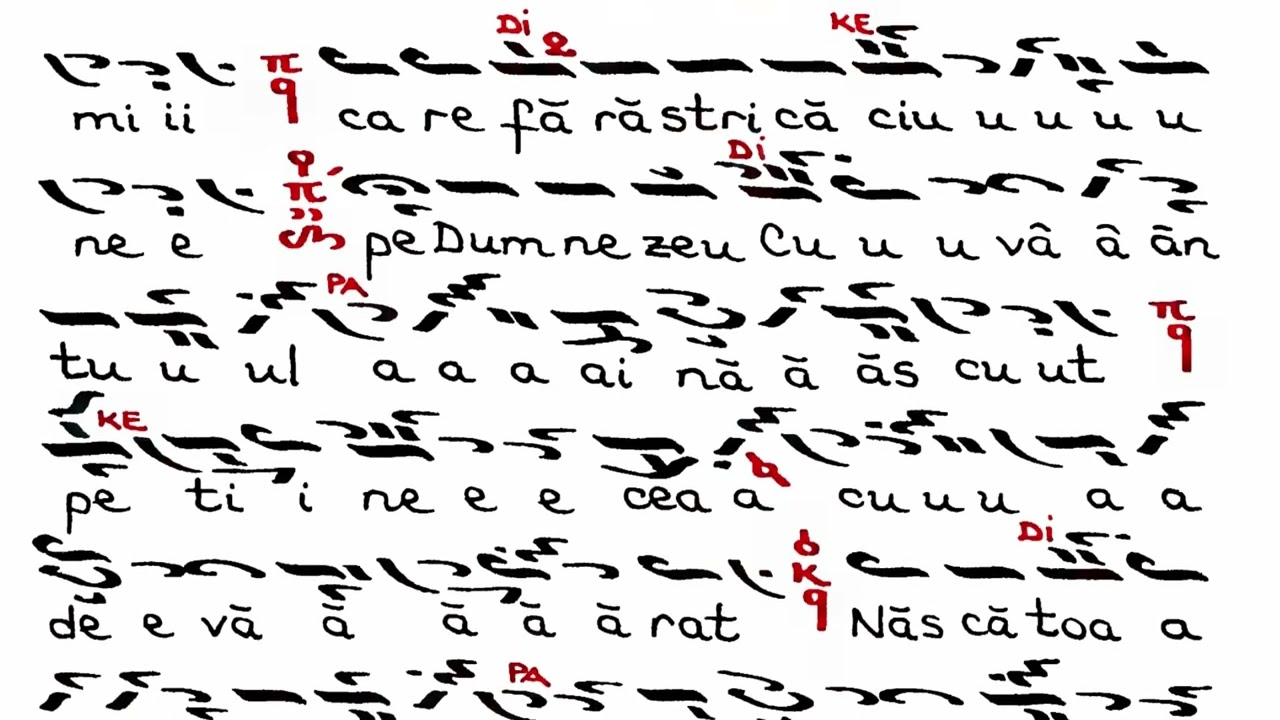 Di KE
mi ii π q ca re fă ră stri că ciu u u u u u
Di
ne e π pe Dum ne zeu Cu u u vâ â ân
PA
tu u ul a a a ai nă ă ăs cu ut π q
KE
pe ti i ne e e cea a cu u u a a
Di
de e vă ă ă ă ă rat K q Năs că toa a
PA